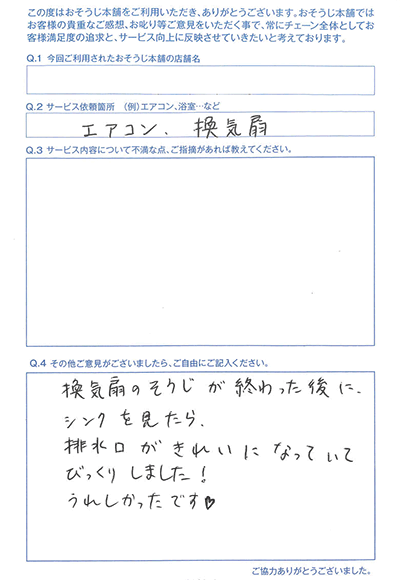 この度はおそうじ本舗をご利用いただき、ありがとうございます。おそうじ本舗では
お客様の貴重なご感想、お叱り等ご意見をいただく事で、常にチェーン全体としてお
客様満足度の追求と、サービス向上に反映させていきたいと考えております。
Q.1 今回ご利用されたおそうじ本舗の店舗名
Q.2 サービス依頼箇所 (例)エアコン、浴室…など
エアコン、換気扇
Q.3 サービス内容について不満な点、ご指摘があれば教えてください。
Q.4 その他ご意見がございましたら、ご自由にご記入ください。
換気扇のそうじが終わった後に、
シンクを見たら、
排水口がきれいになっていて
びっくりしました!
うれしかったです♥
ご協力ありがとうございました。